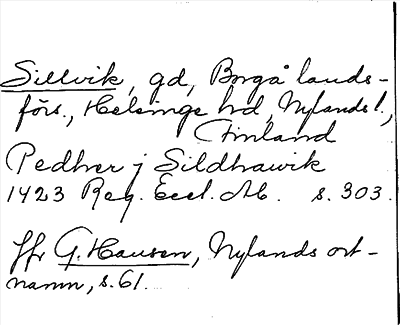 Sillvik, gd, Borgå lands-
förs., Helsinge hd, Nylands l.,
Finland
Pedher j Sildhawik
1423 Reg. Eccl. Ab. s. 303.
Jfr G. Hausen, Nylands ort-
namn, s. 61.